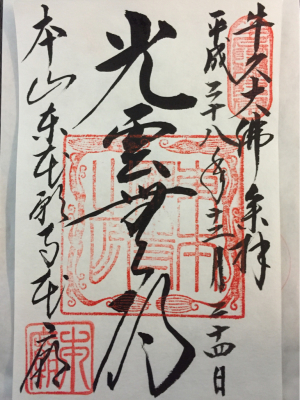 牛久大佛参拝
平成二十八年十二月二十四日
光雲無碍
本山東本願寺本廟